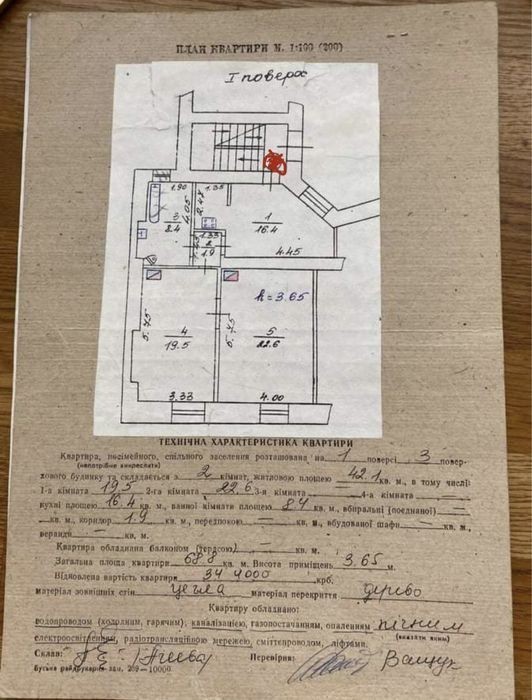 ПЛАН КВАРТИРИ М. 1:100 (200)
I поверх
1.90
1.35
3
8.4
4.05
2.47
1
16.4
1.33
2
1.9
4.45
h = 3.65
5.75
4
19.5
5.75
5
22.6
3.33
4.00
ТЕХНІЧНА ХАРАКТЕРИСТИКА КВАРТИРИ
Квартира, посімейного, спільного заселення розташована на 1 поверсі 3 повер-
(непотрібне викреслити)
хового будинку та складається з 2 кімнат, житловою площею 42.1 кв. м, в тому числі:
1-а кімната 19.5 2-га кімната 22.6 3-я кімната — 4-а кімната —
кухні площею 16.4 кв. м., ванної кімнати площею 8.4 кв. м, вбиральні (поєднаної) —
кв. м., коридор 1.9 кв. м, передпокою — кв. м., вбудованої шафи — кв. м,
веранди — кв. м.
Квартира обладнана балконом (терасою) — кв. м.
Загальна площа квартири 68.8 кв. м. Висота приміщень 3.65 м.
Відновлена вартість квартири 344000 крб.
матеріал зовнішніх стін цегла матеріал перекриття дерево
Квартиру обладнано:
водопроводом (холодним, гарячим), каналізацією, газопостачанням, опаленням пічним
(вказати яким)
електроосвітленням, радіотрансляційною мережею, сміттєпроводом, ліфтами.
Склав: Перевірив: Ващук
Буська райдрукарня зам. 209—10000.